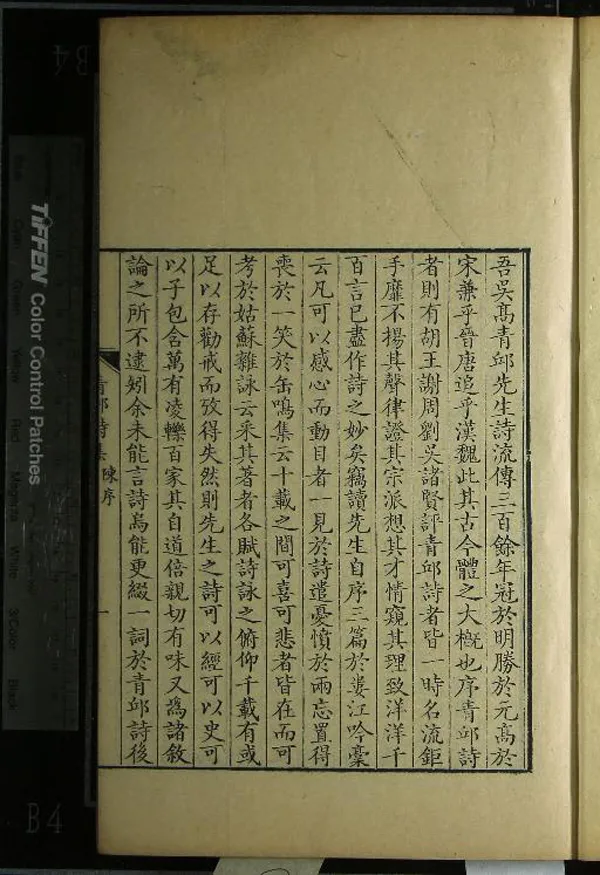 吾吳髙青邱先生詩流傳三百餘年冠於明勝於元髙於
宋兼乎晉唐追乎漢魏此其古今體之大概也序青邱詩
者則有胡王謝周劉吳諸賢評青邱詩者皆一時名流鉅
手靡不揚其聲律證其宗派想其才情窺其理致洋洋千
百言已盡作詩之妙矣竊讀先生自序三篇於婁江吟藁
云凡可以感心而動目者一見於詩遣憂憤於兩忘置得
喪於一笑於缶鳴集云十載之間可喜可悲者皆在而可
考於姑蘇雜詠云采其著者各賦詩詠之俯仰千載有或
足以存勸戒而攷得失然則先生之詩可以經可以史可
以子包含萬有凌轢百家其自道倍親切有味又為諸敘
論之所不逮矧余未能言詩烏能更綴一詞於青邱詩後
青邱詩集 陳序 一
TIFFEN Color Control Patches
B4
B4